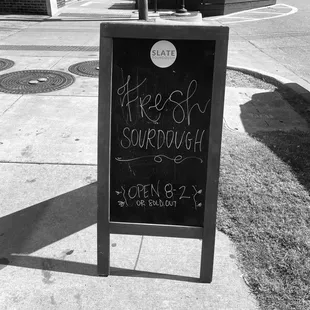 SLATE
Fresh
SOURDOUGH
{OPEN 8-2}
OR SOLD OUT